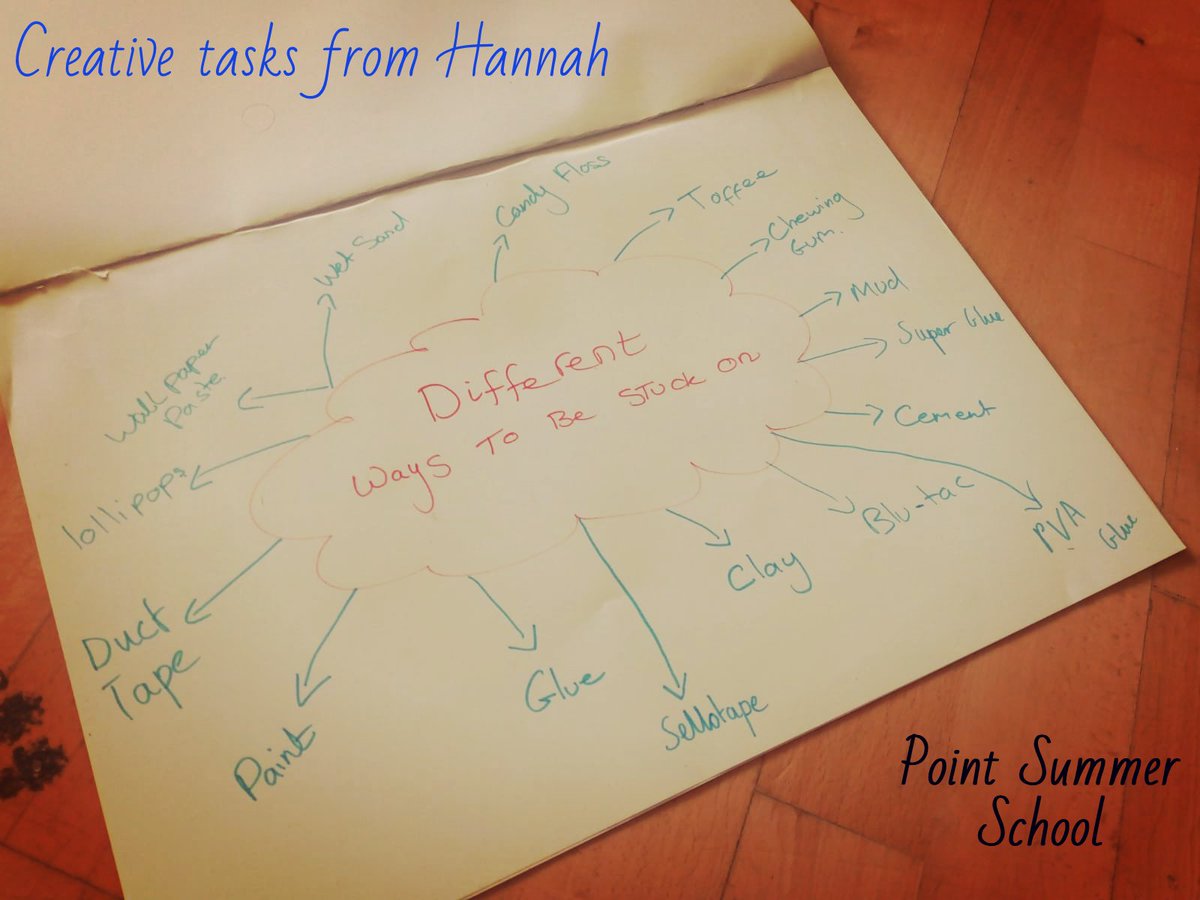 Creative tasks from Hannah
Candy Floss
Toffee
Chewing
Gum.
Wet Sand
Mud
Super Glue
Wall Paper
Paste.
Different
Ways To Be Stuck on
Cement
lollipops
Blu-tac
PVA
Glue
Clay
Duct
Tape
Glue
Sellotape
Paint
Point Summer
School